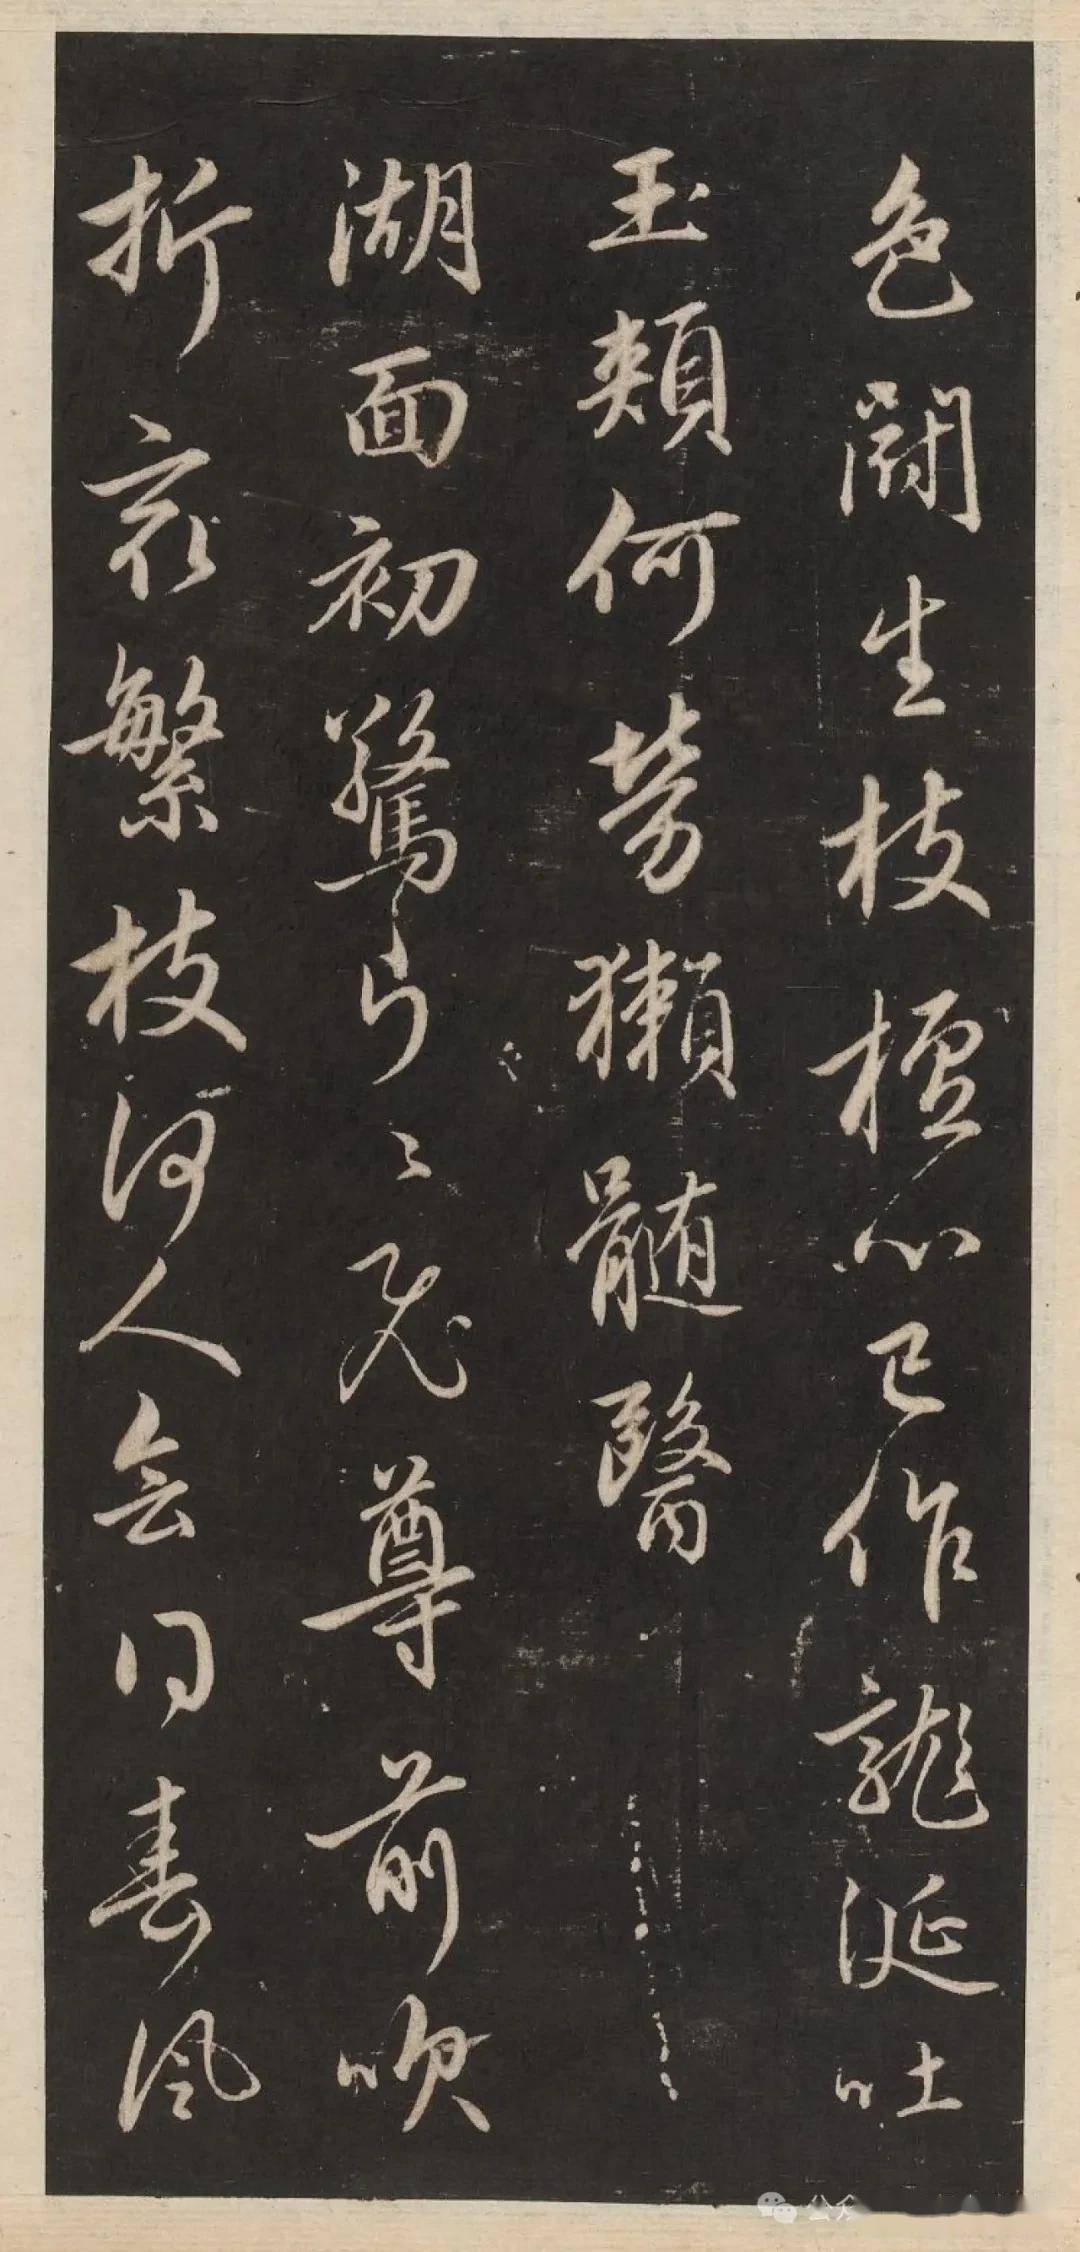 色鬭生枝檀心已作龍涎吐
玉頰何勞獺髓醫
湖面初驚片〻飛尊前吹
折最繁枝何人會得春風